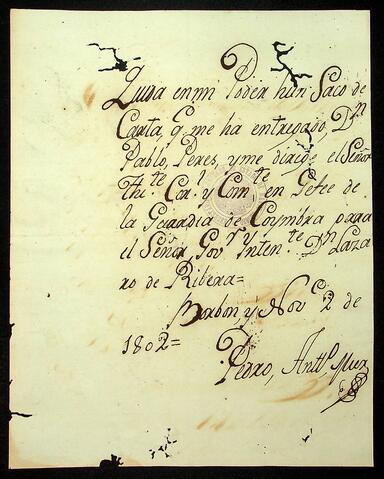 Queda en mi Poder hun Saco de
Carta, q. me ha entregado, Dn
Pablo, Peres, y me dirige el Señor
The.te Cor.l y Com.te en Gefee de
la Guardia de Coymbra para
el Señor, Gov.r y Inten.te Dn Laza
ro de Ribera=
Borbon, y Nov.e 2 de
1802=
Pedro, Ant.o